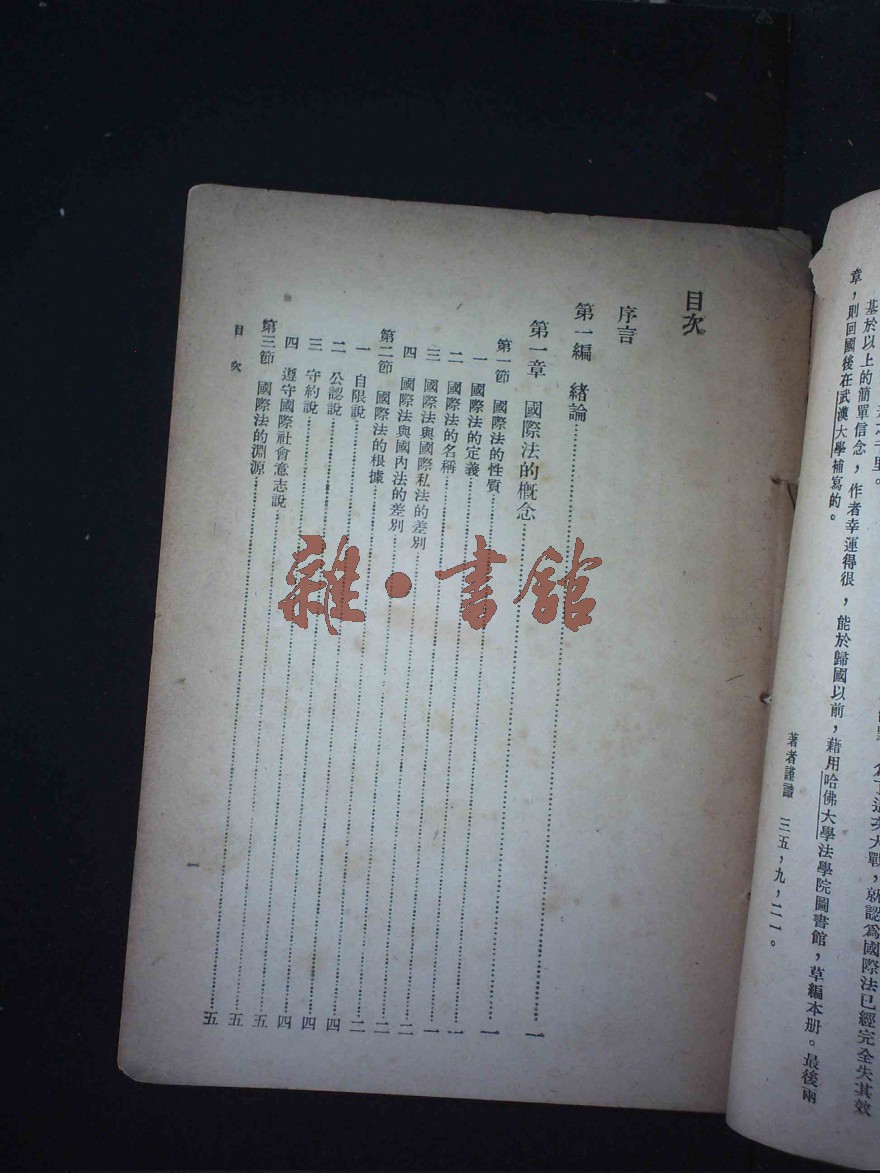 大戰，就認爲國際法已經完全失其效
千里。
基於以上的簡單信念，作者幸運得很，能於歸國以前，藉用哈佛大學法學院圖書館，草編本册。最後兩
章，則回國後在武漢大學補寫的。
著者謹識 三五，九，二一。
目次
序言
第一編 緒論……一
第一章 國際法的概念……一
第一節 國際法的性質……一
一 國際法的定義……一
二 國際法的名稱……二
三 國際法與國際私法的差別……二
四 國際法與國內法的差別……二
第二節 國際法的根據……四
一 自限說……四
二 公認說……四
三 守約說……五
四 遵守國際社會意志說……五
第三節 國際法的淵源……五
目次
一
雜·書館